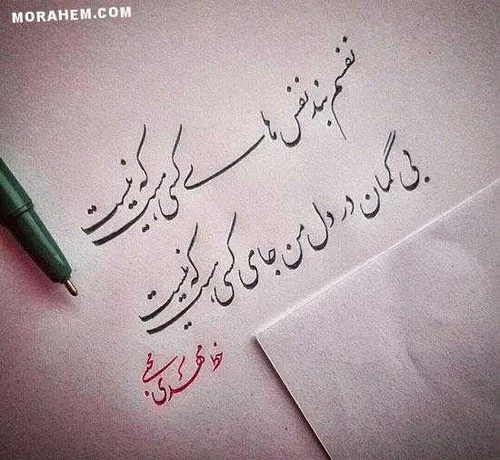 MORAHEM.COM
نفسم بند نفس های کسی هست که نیست
بی گمان در دل من جای کسی هست که نیست